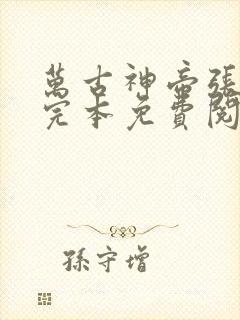 萬古神帝張
完本免費閱
孫守增